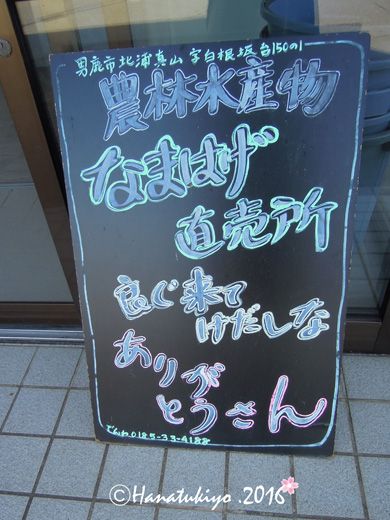 男鹿市北浦真山字白根坂台150の1
農林水産物
なまはげ
直売所
良ぐ来て
けだしな
ありが
とうさん
でんわ0185-33-4188
©Hanatukiyo.2016